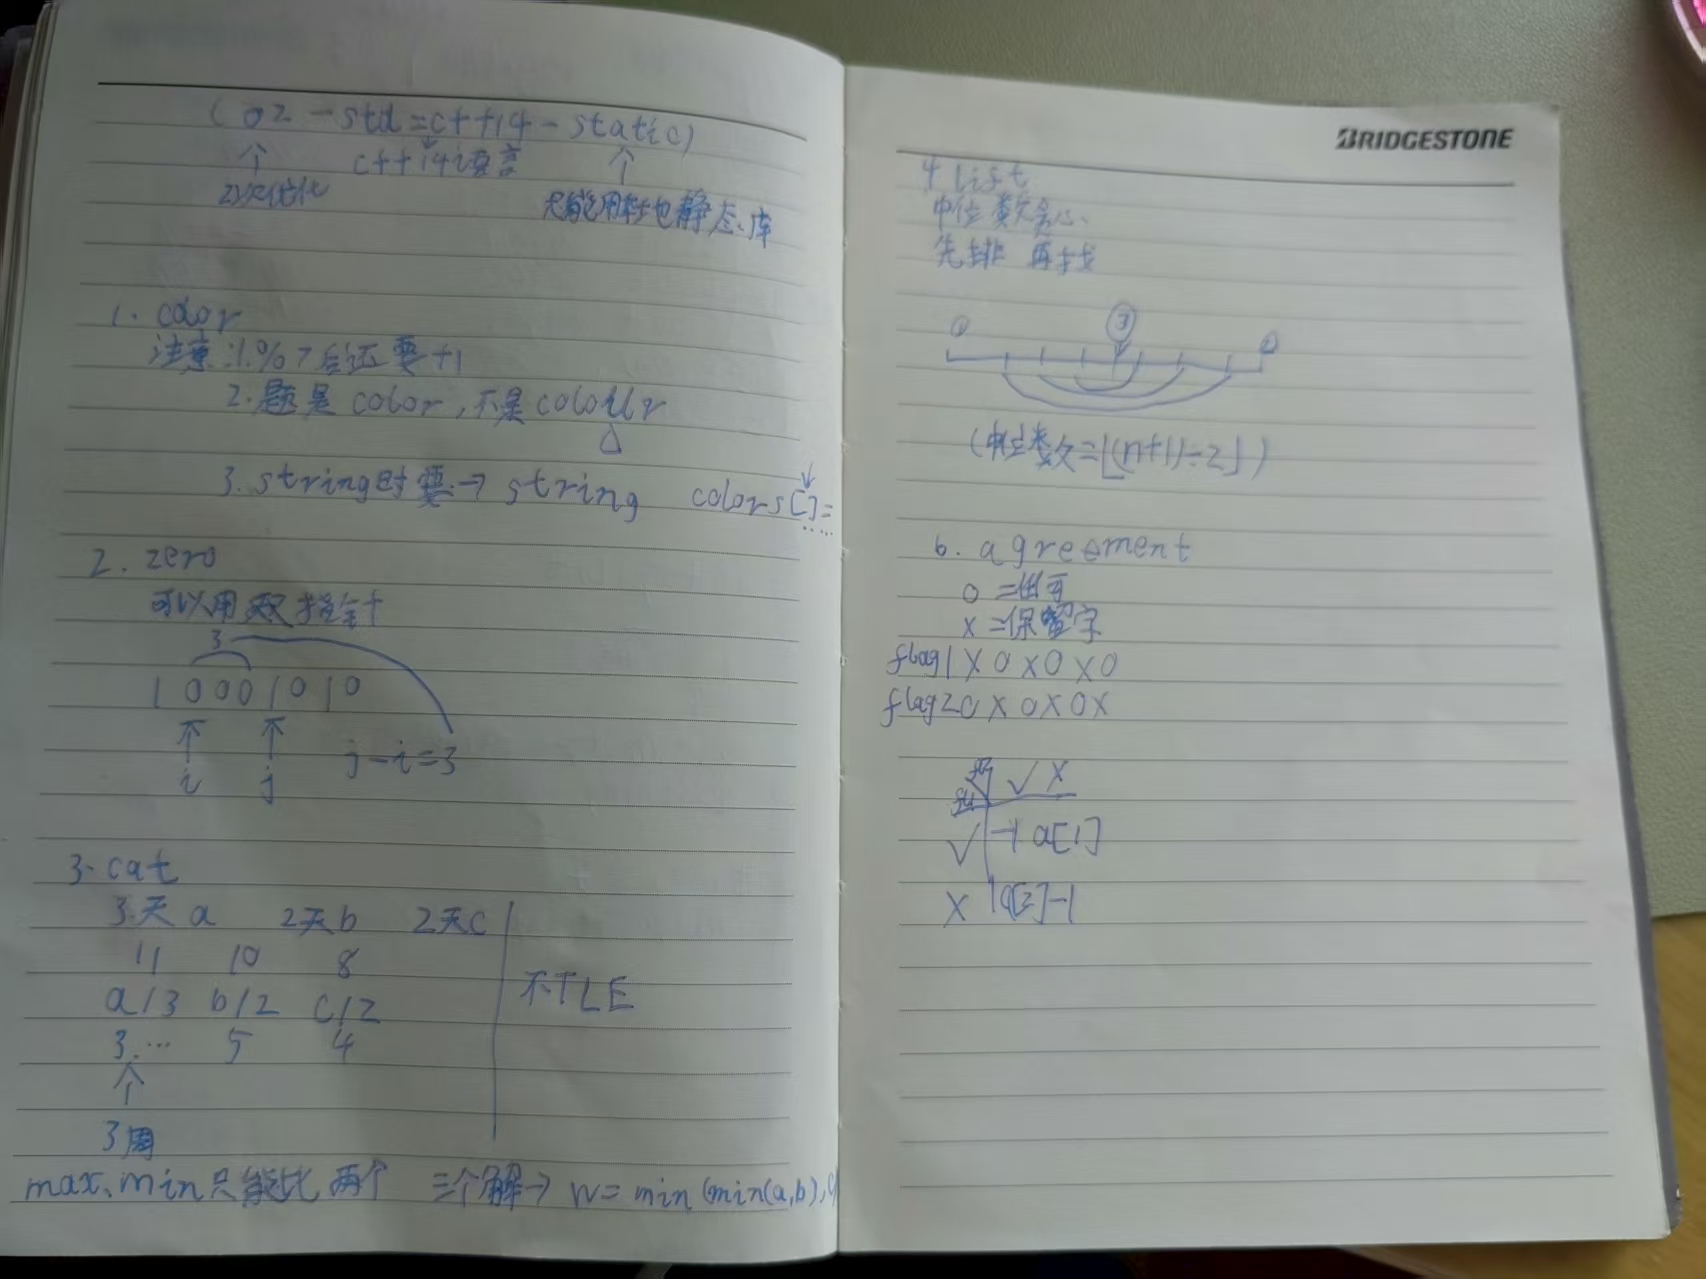 (O2 -std=c++14 -static)
2次优化 c++14语言 只能用本地静态库
1. color
注意:1.%7后还要+1
2.题是color,不是colour
3.string时要→string colors[]=
2. zero
可以用双指针
3
1 0 0 0 1 0 1 0
i j j-i=3
3. cat
3天a 2天b 2天c
11 10 8
a/3 b/2 c/2
不TLE
3.… 5 4
3周
max、min只能比两个 三个解→ w=min(min(a,b),c)
BRIDGESTONE
4 list
中位数贪心
先排 再找
③
(中位数=⌊(n+1)÷2⌋)
6. agreement
x=保留字
flag1 x o x o x o
flag2 o x o x o x
√ x
√ -1 a[1]
x a[2] -1